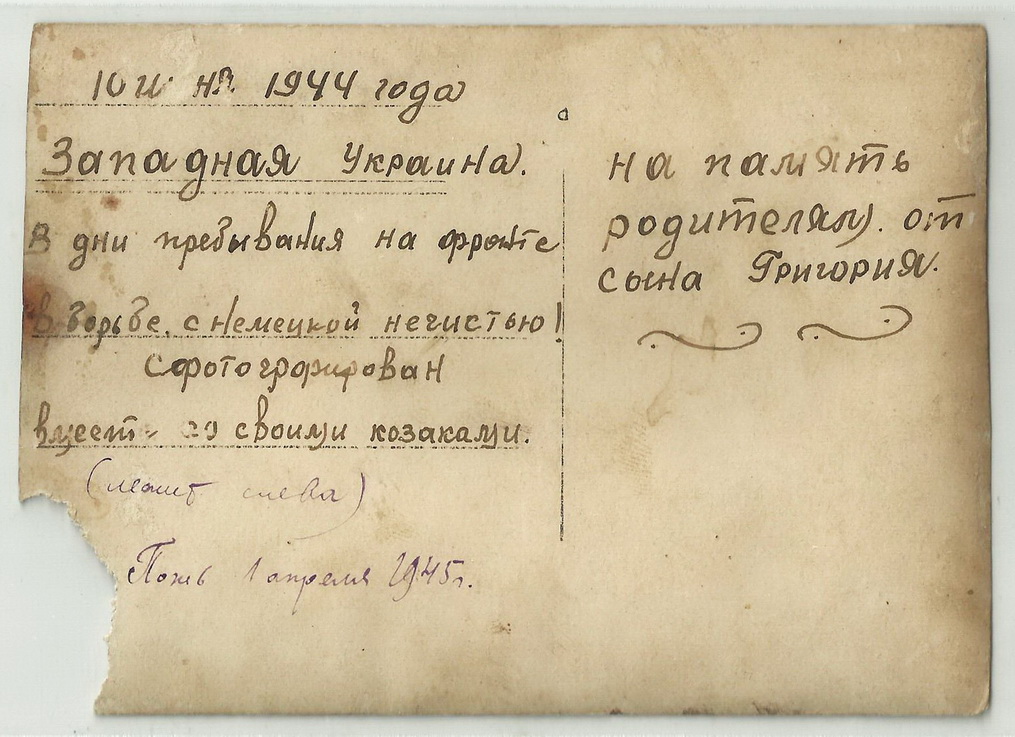 10 июня 1944 года
Западная Украина.
В дни пребывания на фронте
в борьбе с немецкой нечистью!
Сфотографирован
вместе со своими козаками.
(лежит слева)
1 апреля 1945г.
на память
родителям. от
сына Григория.